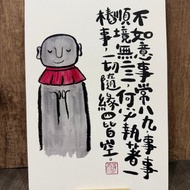 不如意事常八九事事
順境無二三,何必執著一
樁事,一切隨緣四皆空。